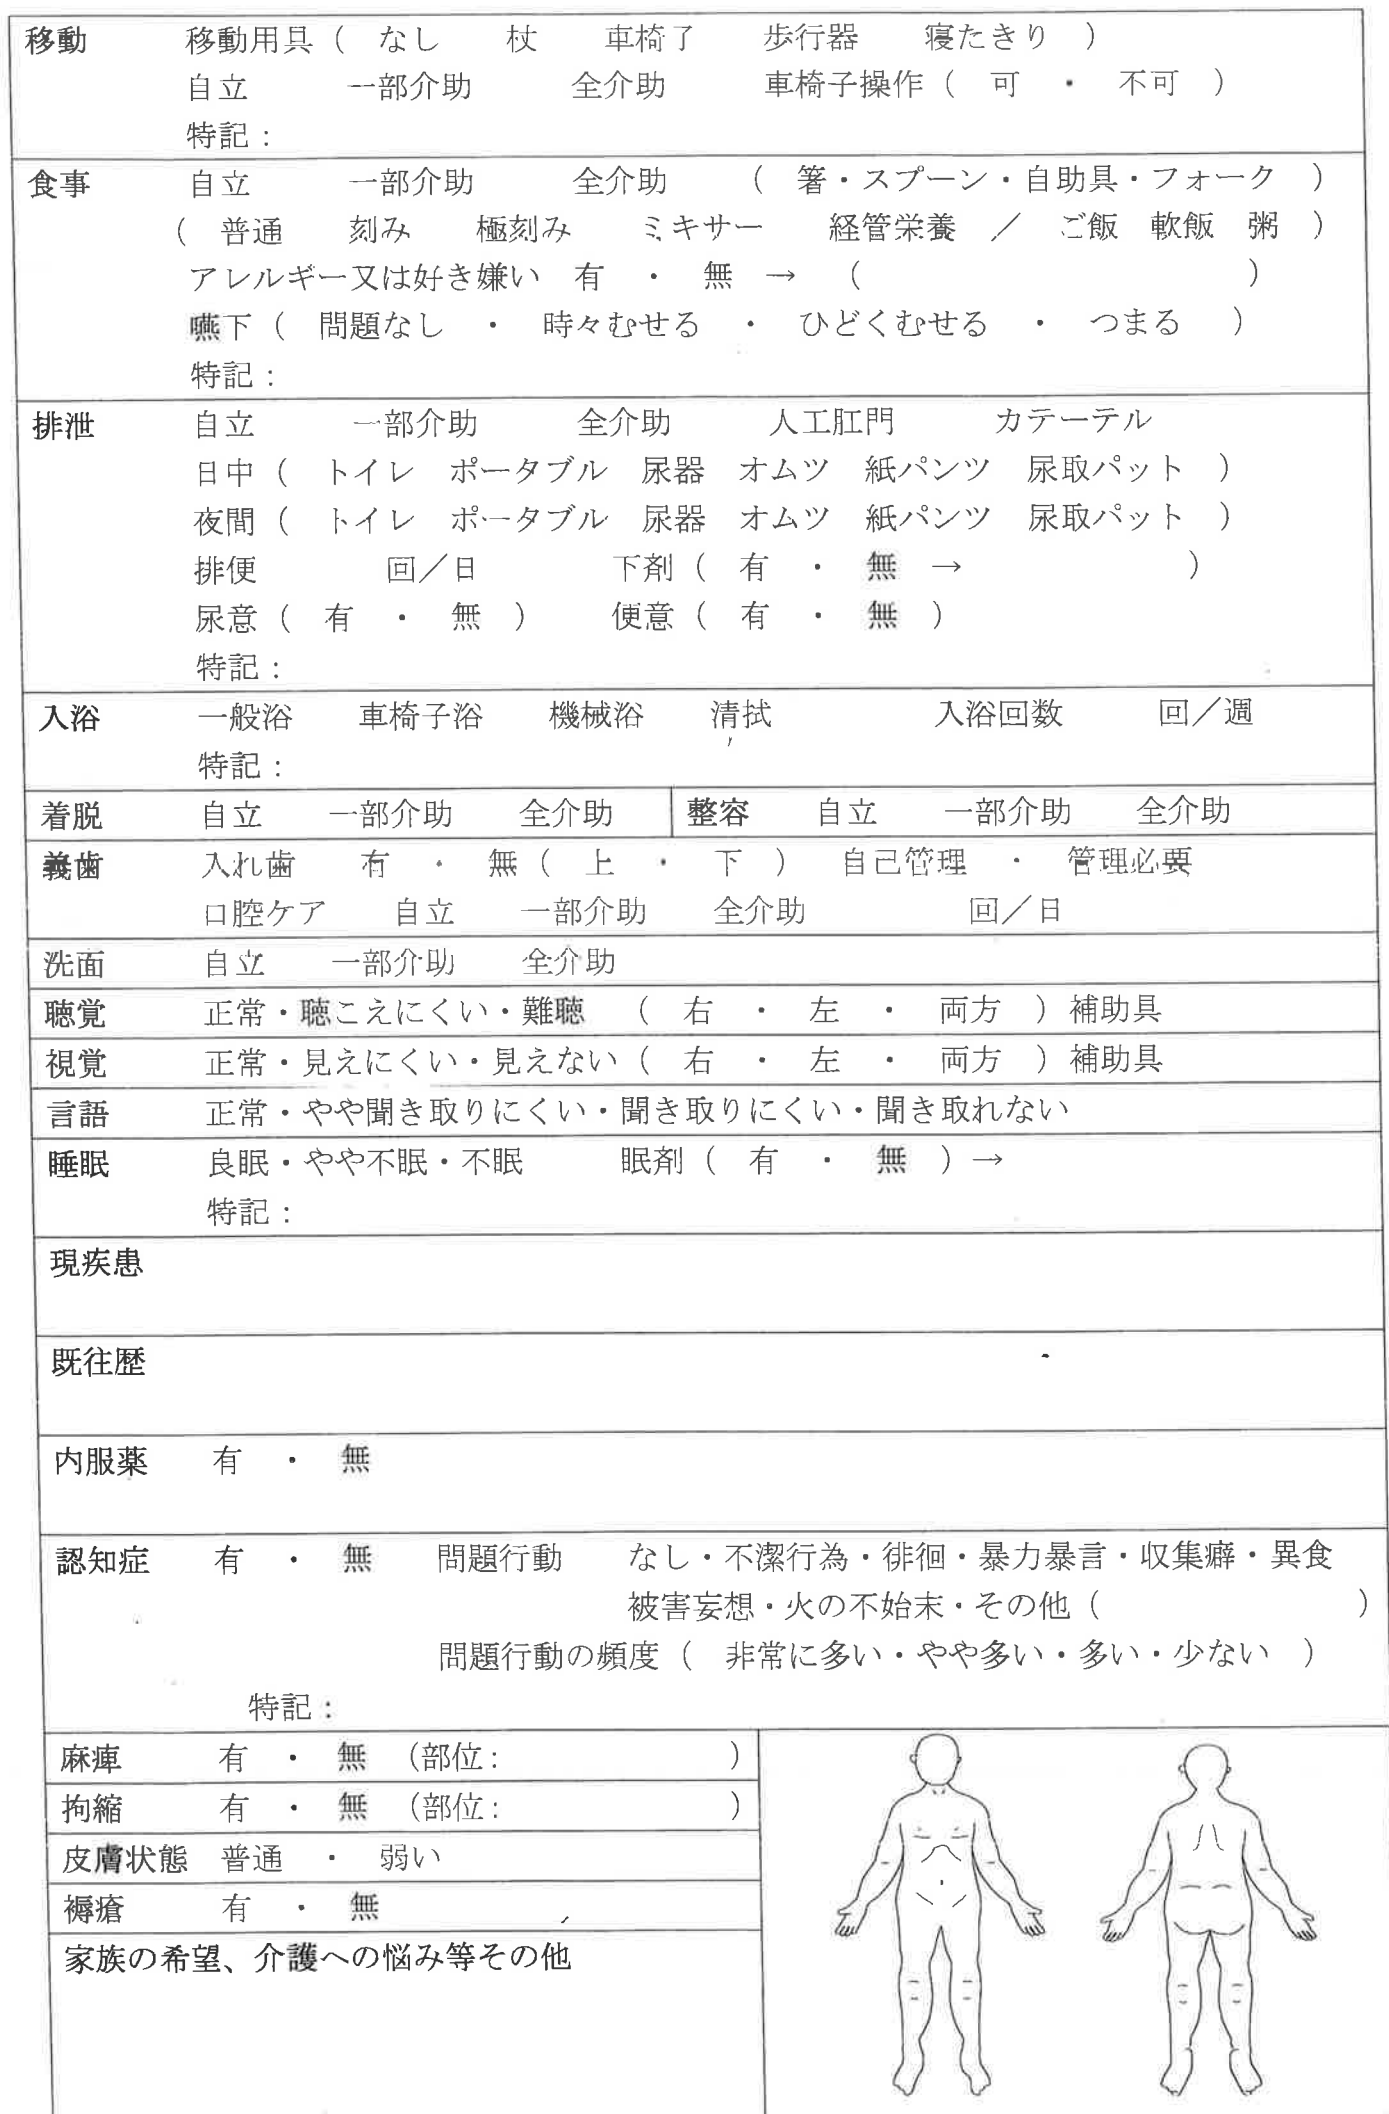 移動 移動用具（ なし 杖 車椅子 歩行器 寝たきり ）
自立 一部介助 全介助 車椅子操作（ 可 ・ 不可 ）
特記：
食事 自立 一部介助 全介助 （ 箸・スプーン・自助具・フォーク ）
（ 普通 刻み 極刻み ミキサー 経管栄養 ／ ご飯 軟飯 粥 ）
アレルギー又は好き嫌い 有 ・ 無 → （ ）
嚥下（ 問題なし ・ 時々むせる ・ ひどくむせる ・ つまる ）
特記：
排泄 自立 一部介助 全介助 人工肛門 カテーテル
日中（ トイレ ポータブル 尿器 オムツ 紙パンツ 尿取パット ）
夜間（ トイレ ポータブル 尿器 オムツ 紙パンツ 尿取パット ）
排便 回／日 下剤（ 有 ・ 無 → ）
尿意（ 有 ・ 無 ） 便意（ 有 ・ 無 ）
特記：
入浴 一般浴 車椅子浴 機械浴 清拭 入浴回数 回／週
特記：
着脱 自立 一部介助 全介助 整容 自立 一部介助 全介助
義歯 入れ歯 有 ・ 無（ 上 ・ 下 ） 自己管理 ・ 管理必要
口腔ケア 自立 一部介助 全介助 回／日
洗面 自立 一部介助 全介助
聴覚 正常・聴こえにくい・難聴 （ 右 ・ 左 ・ 両方 ）補助具
視覚 正常・見えにくい・見えない（ 右 ・ 左 ・ 両方 ）補助具
言語 正常・やや聞き取りにくい・聞き取りにくい・聞き取れない
睡眠 良眠・やや不眠・不眠 眠剤（ 有 ・ 無 ）→
特記：
現疾患
既往歴
内服薬 有 ・ 無
認知症 有 ・ 無 問題行動 なし・不潔行為・徘徊・暴力暴言・収集癖・異食
被害妄想・火の不始末・その他（ ）
問題行動の頻度（ 非常に多い・やや多い・多い・少ない ）
特記：
麻痺 有 ・ 無 （部位： ）
拘縮 有 ・ 無 （部位： ）
皮膚状態 普通 ・ 弱い
褥瘡 有 ・ 無
家族の希望、介護への悩み等その他